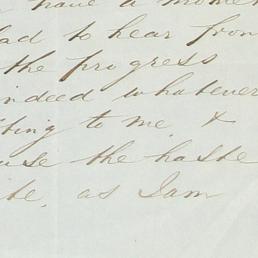 have a mome
lad to hear from
the progress
indeed whatever
ting to me, &
use the haste
ite, as I am